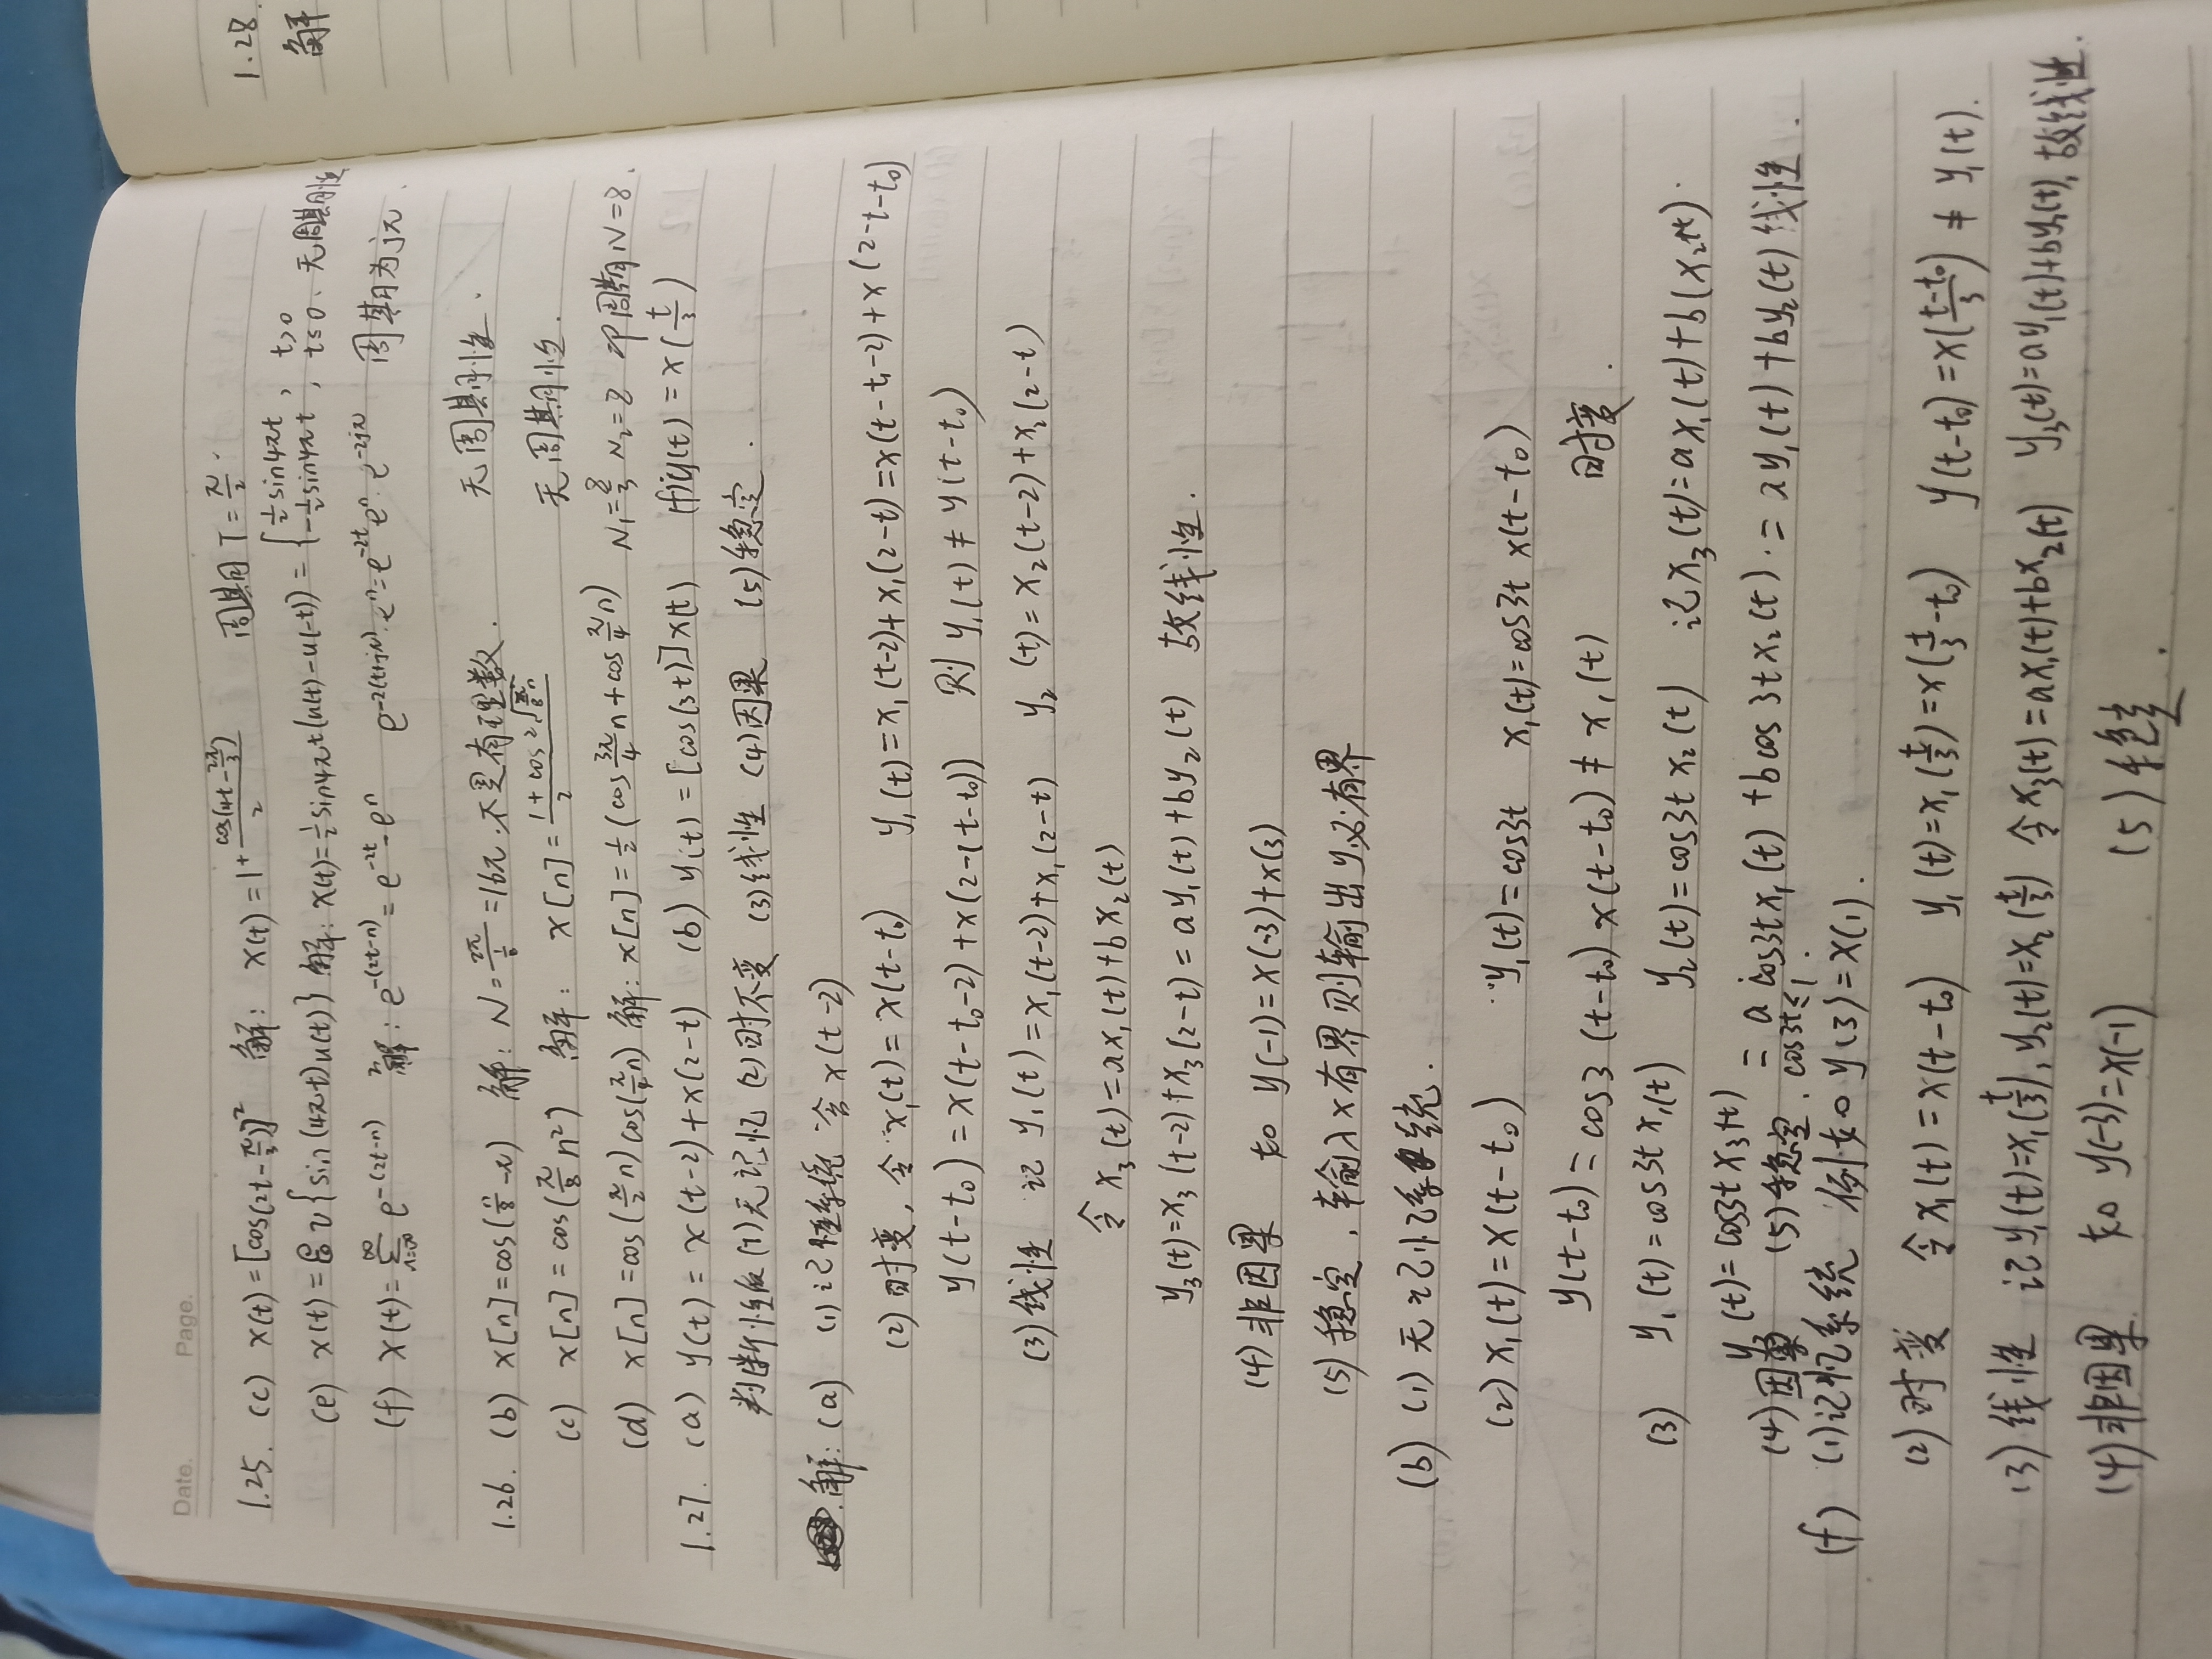 Date. Page.
1.25. (c) x(t)=[cos(2t-π/3)]² 解: x(t)=1+cos(4t-2π/3)/2 周期T=π/2.
(e) x(t)=Ev{sin(4πt)u(t)} 解: x(t)=½sin4πt(u(t)-u(-t))={½sin4πt, t>0
-½sin4πt, t≤0、无周期性
(f) x(t)=∑ e^-(2t-n) 解: e^-(2t-n)=e^-2t·e^n e^-2(t+jπ)·e^n=e^-2t e^n·e^-2jπ 周期为jπ.
1.26. (b) x[n]=cos(n/8-π) 解: N=2π/(1/8)=16π.不是有理数. 无周期性.
(c) x[n]=cos(π/8 n²) 解: x[n]= 无周期性.
(d) x[n]=cos(π/2 n)cos(π/4 n) 解: x[n]=½(cos 3π/4 n+cos π/4 n) N₁=8/3 N₂=8 即周期N=8.
1.27. (a) y(t)=x(t-2)+x(2-t) (b) y(t)=[cos(3t)]x(t) (f) y(t)=x(t/3)
判断性质 (1)无记忆 (2)时不变 (3)线性 (4)因果 (5)稳定.
解: (a) (1)记忆系统 含x(t-2)
(2)时变, 令x₁(t)=x(t-t₀) y₁(t)=x₁(t-2)+x₁(2-t)=x(t-t₀-2)+x(2-t-t₀)
y(t-t₀)=x(t-t₀-2)+x(2-(t-t₀)) 则y₁(t)≠y(t-t₀)
(3)线性 记y₁(t)=x₁(t-2)+x₁(2-t) y₂(t)=x₂(t-2)+x₂(2-t)
令x₃(t)=ax₁(t)+bx₂(t)
y₃(t)=x₃(t-2)+x₃(2-t)=ay₁(t)+by₂(t) 故线性.
(4)非因果 如y(-1)=x(-3)+x(3)
(5)稳定, 输入x有界则输出y必有界
(b) (1)无记忆系统.
(2)x₁(t)=x(t-t₀) y₁(t)=cos3t x₁(t)=cos3t x(t-t₀)
y(t-t₀)=cos3(t-t₀)x(t-t₀)≠x₁(t) 时变.
(3) y₁(t)=cos3t x₁(t) y₂(t)=cos3t x₂(t) 记x₃(t)=ax₁(t)+b(x₂(t)).
y₃(t)=cos3t x₃(t)=a cos3t x₁(t)+bcos3t x₂(t).=ay₁(t)+by₂(t)线性.
(4)因果 (5)稳定. cos3t≤1.
(f) (1)记忆系统 例如y(3)=x(1).
(2)时变 令x₁(t)=x(t-t₀) y₁(t)=x₁(t/3)=x(t/3-t₀) y(t-t₀)=x((t-t₀)/3)≠y₁(t).
(3)线性 记y₁(t)=x₁(t/3), y₂(t)=x₂(t/3) 令x₃(t)=ax₁(t)+bx₂(t) y₃(t)=ay₁(t)+by₂(t), 故线性.
(4)非因果 如y(-3)=x(-1) (5)稳定.
1.28
解